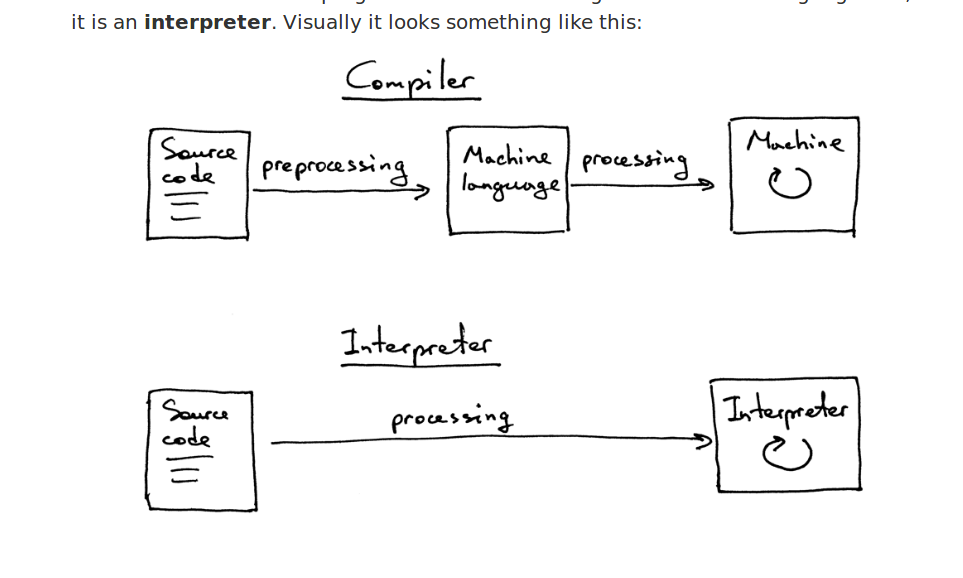 it is an interpreter. Visually it looks something like this:
Compiler
Source
code
preprocessing
Machine
language
processing
Machine
Interpreter
Source
code
processing
Interpreter